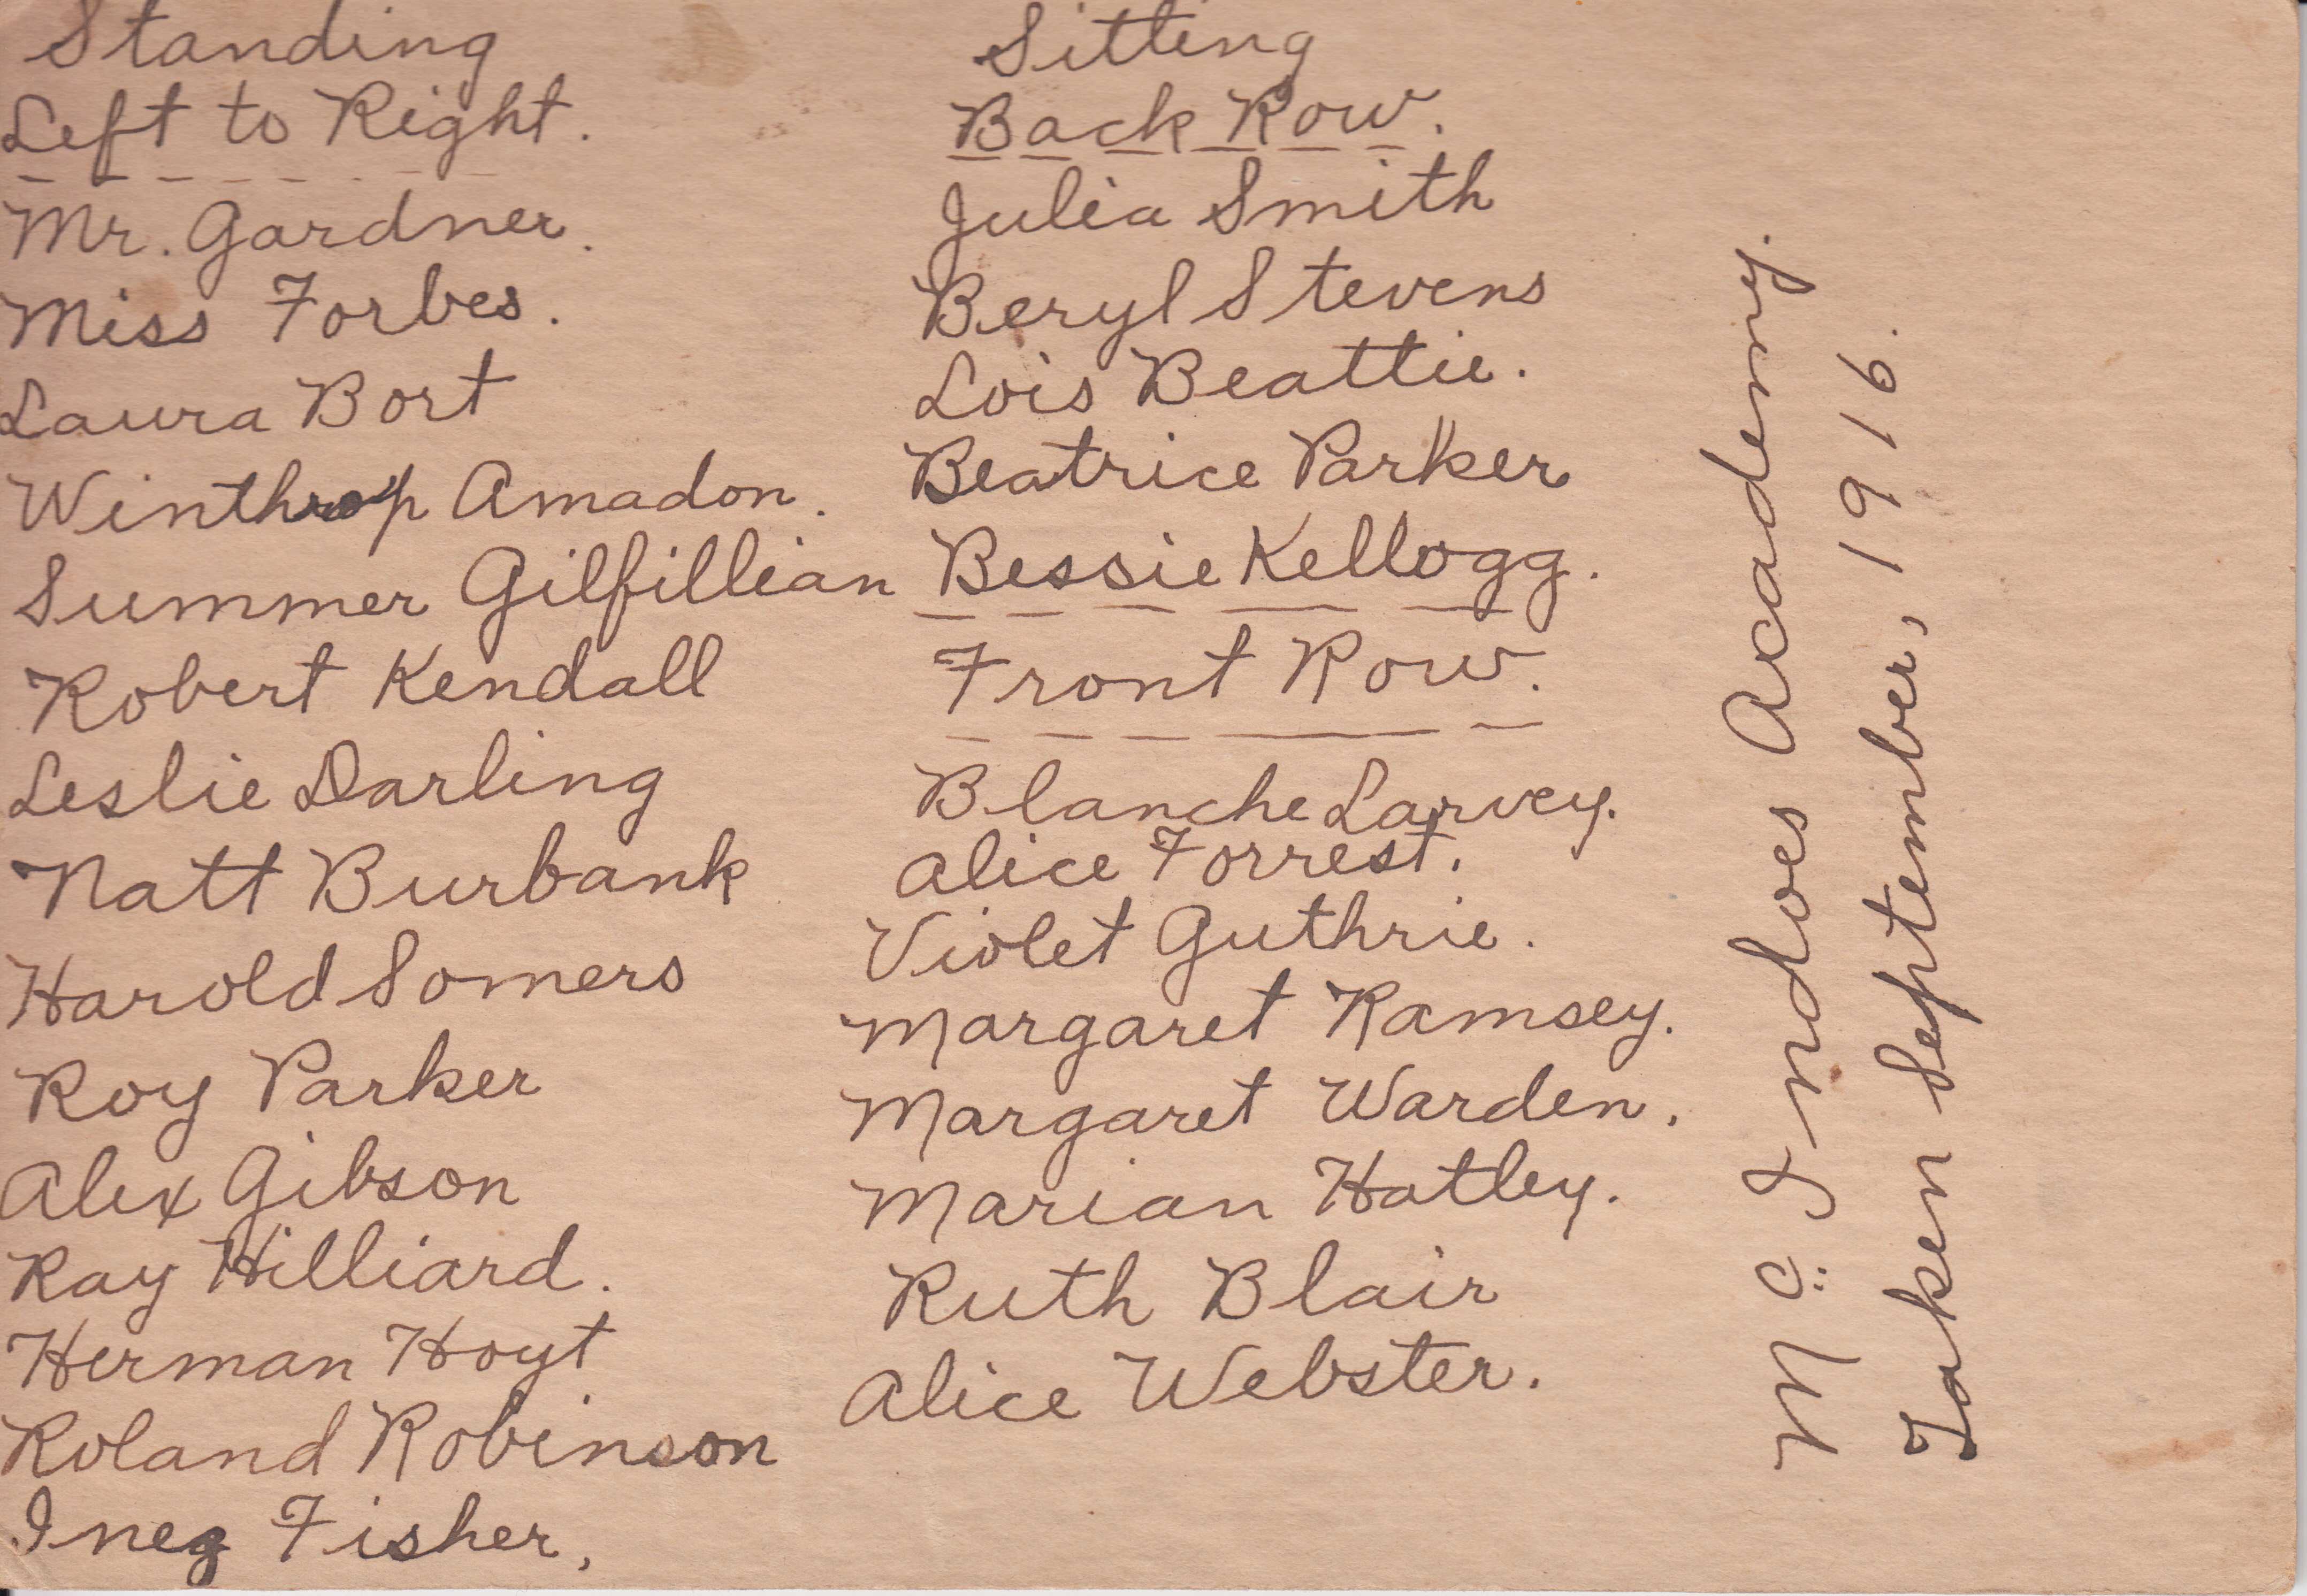 Standing
Left to Right.
Mr. Gardner.
Miss Forbes.
Laura Bort
Winthrop Amadon.
Summer Gilfillian
Robert Kendall
Leslie Darling
Natt Burbank
Harold Somers
Roy Parker
Alex Gibson
Ray Hilliard.
Herman Hoyt
Roland Robinson
Inez Fisher,
Sitting
Back Row.
Julia Smith
Beryl Stevens
Lois Beattie.
Beatrice Parker
Bessie Kellogg.
Front Row.
Blanche Larvey.
Alice Forrest.
Violet Guthrie.
Margaret Ramsey.
Margaret Warden.
Marian Hatley.
Ruth Blair
Alice Webster.
Mc Indoes Academy.
Taken September, 1916.